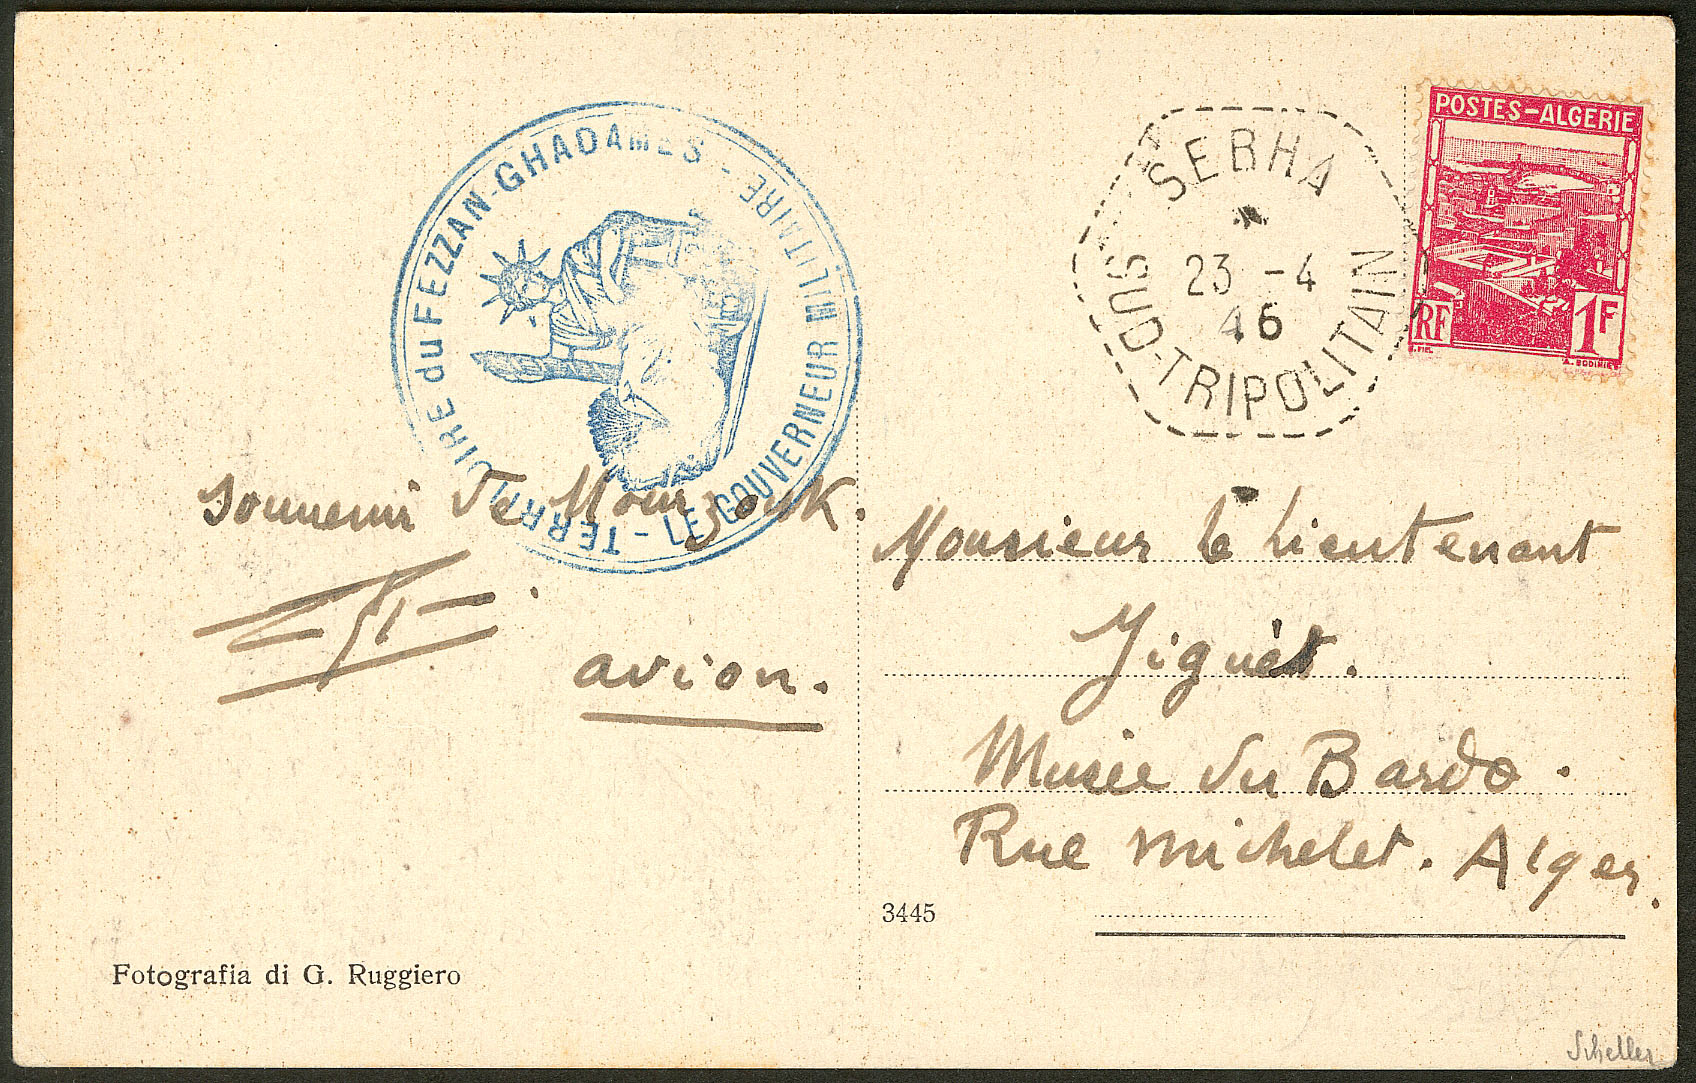 TERRITOIRE du FEZZAN-GHADAMES - LE GOUVERNEUR MILITAIRE -
SEBHA
23 -4
46
SUD-TRIPOLITAIN
POSTES-ALGERIE
RF
1F
souvenir de Mourzouk.
avion.
Monsieur le Lieutenant
Musée du Bardo.
Rue Michelet. Alger.
3445
Fotografia di G. Ruggiero
Scheller